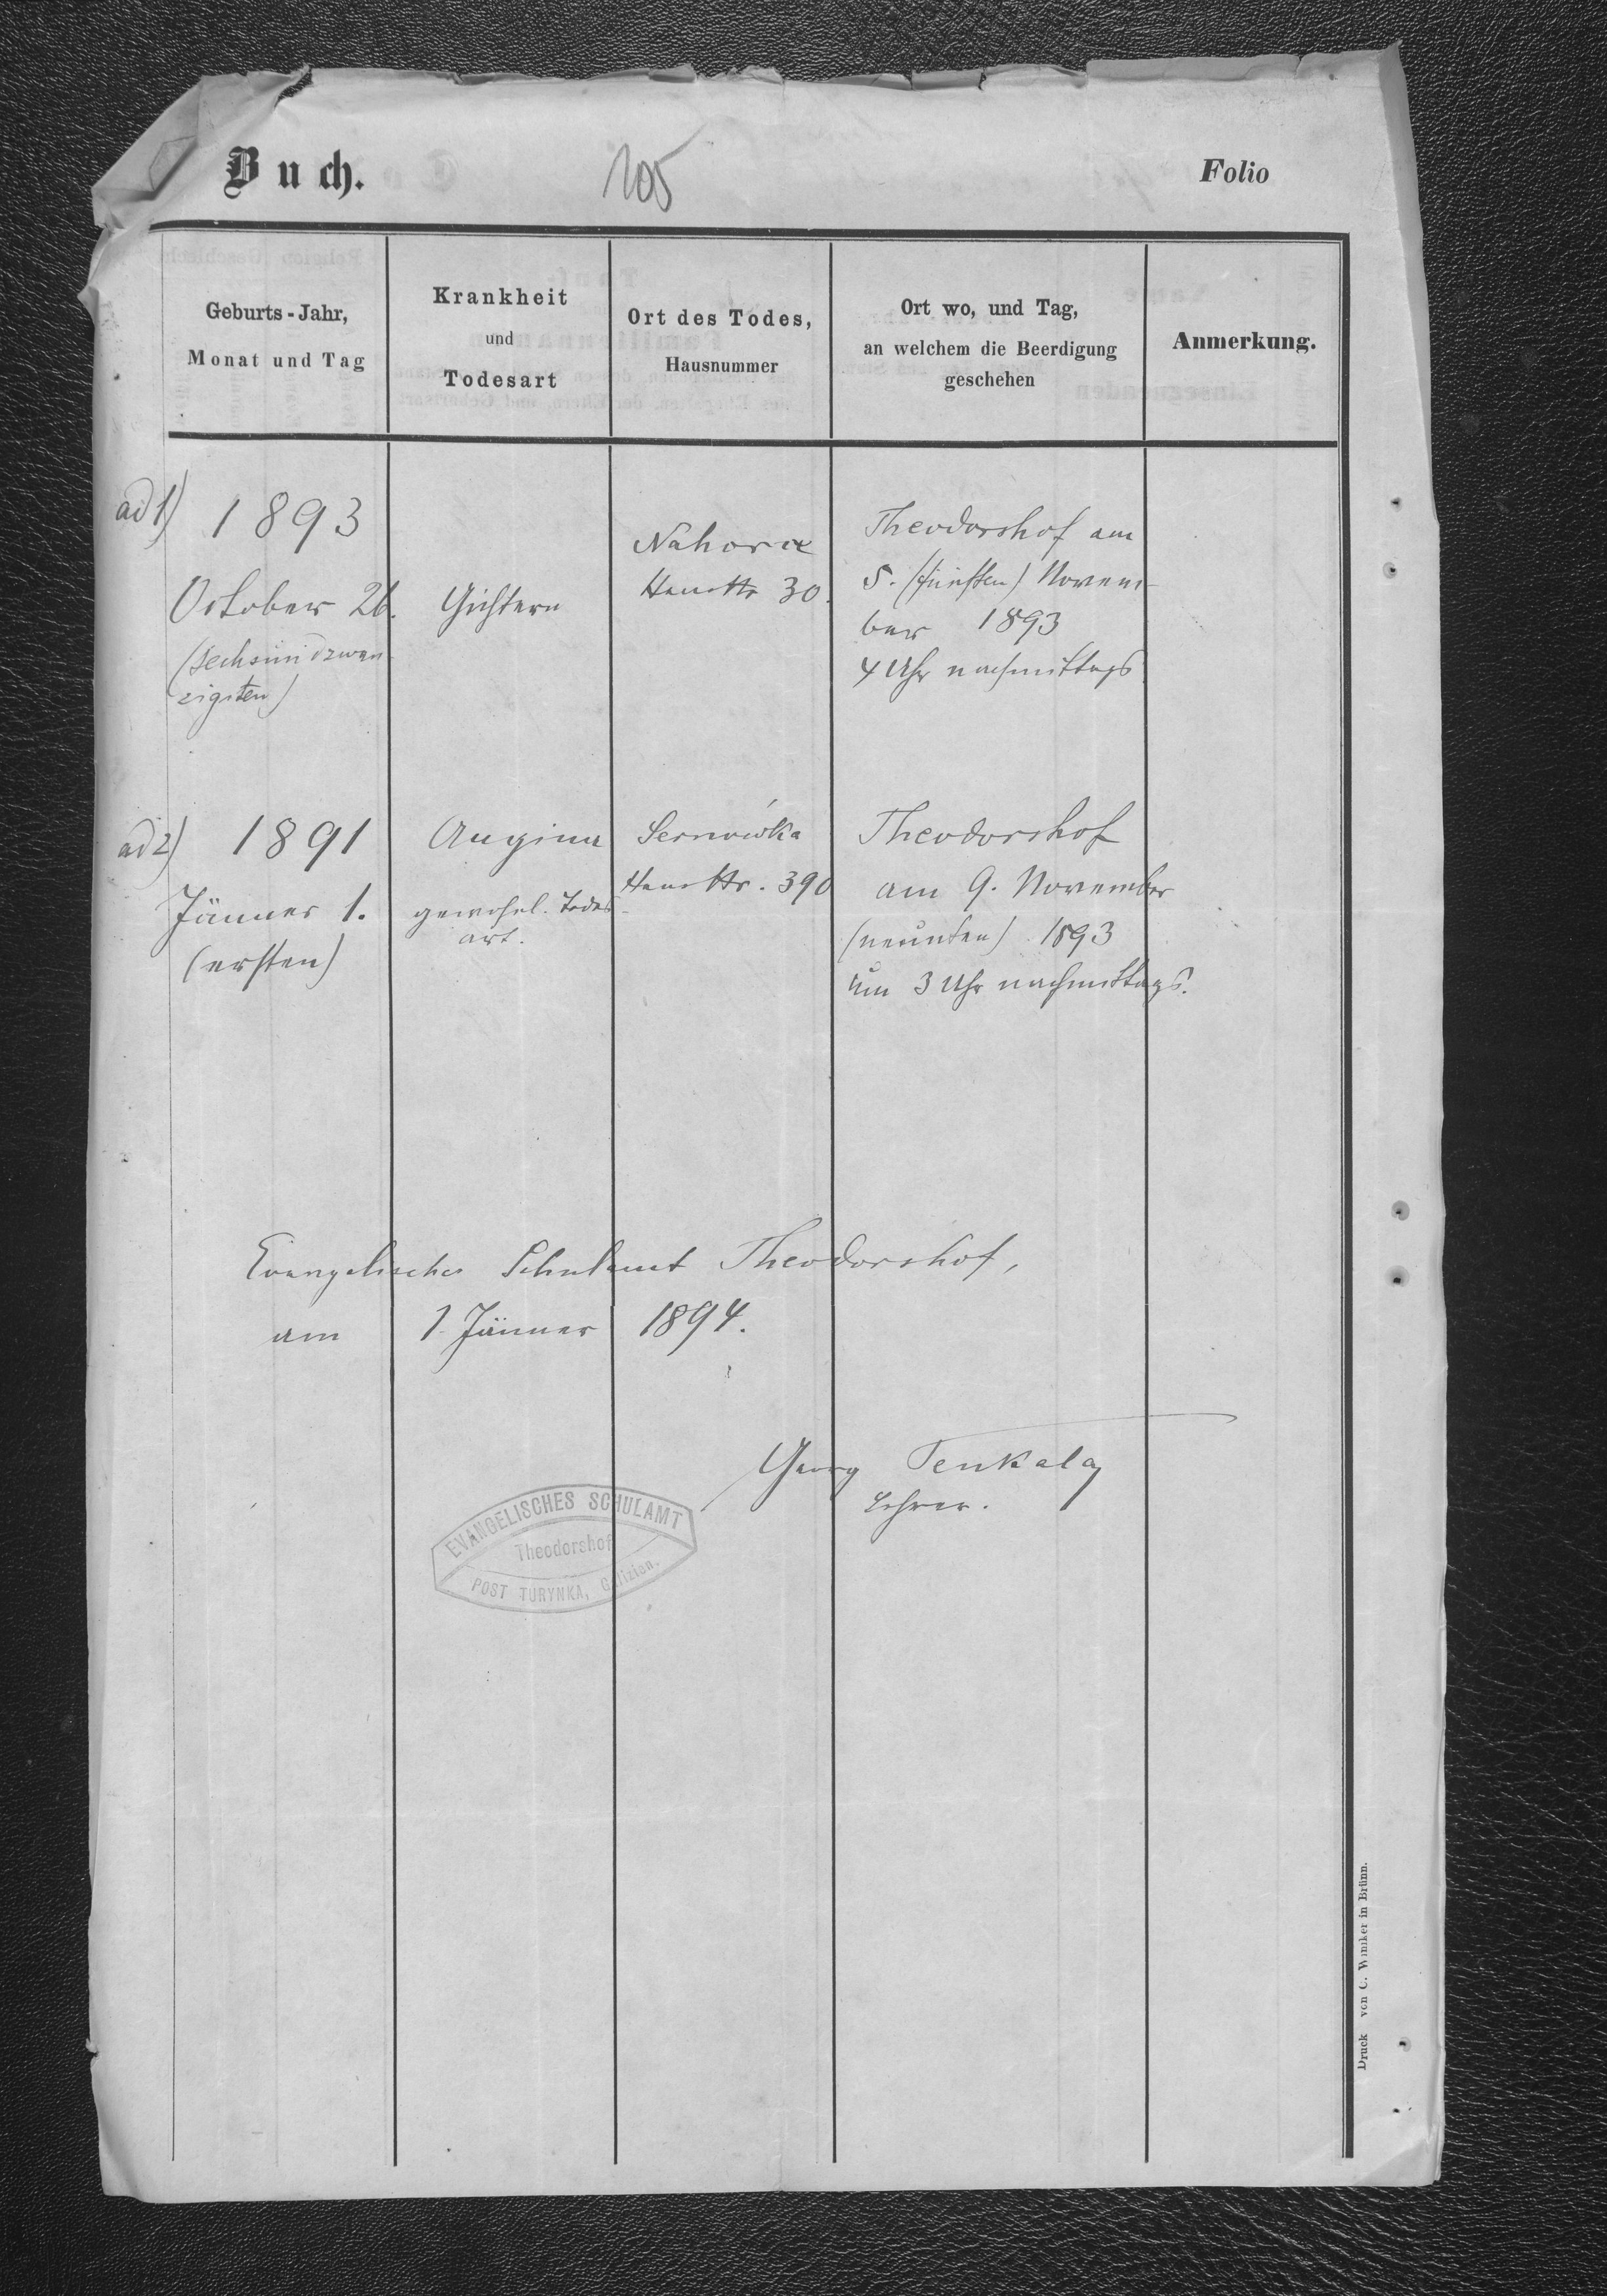 Buch.
105
Folio
Geburts-Jahr,
Monat und Tag
Krankheit
und
Todesart
Ort des Todes,
Hausnummer
Ort wo, und Tag,
an welchem die Beerdigung
geschehen
Anmerkung.
ad 1) 1893
October 26.
(sechsundzwan
zigsten)
Gichtern
Nahorce
30.
Theodorshof am
5. (fünften) Novem-
ber 1893
4 Uhr nachmittags
ad 2) 1891
Jänner 1.
(ersten)
Angina
gewöhnl. Todes-
art.
390
Theodorshof
am 9. November
(neunten) 1893
um 3 Uhr nachmittags.
Evangelisches Schulamt Theodorshof,
am 1. Jänner 1894.
Georg Tenkala
Lehrer.
EVANGELISCHES SCHULAMT
Theodorshof
POST TURYNKA, Galizien.
Druck von C. Winiker in Brünn.